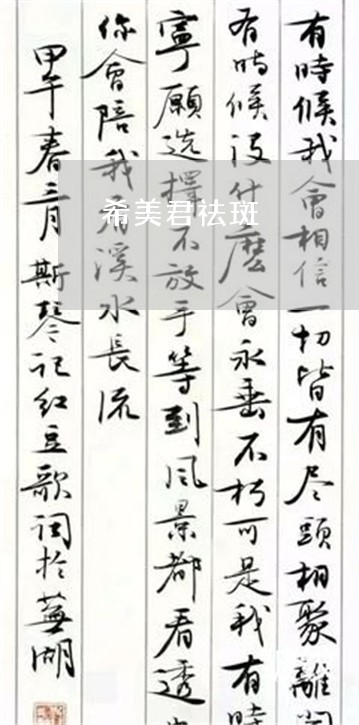 有時候我會相信一切皆有尽頭相聚離開
有時候沒什麽會永垂不朽可是我有時
寧願选擇不放手等到风景都看透
你會陪我看溪水長流
甲午春三月斯琴记红豆歌词於蕪湖
希美君祛斑